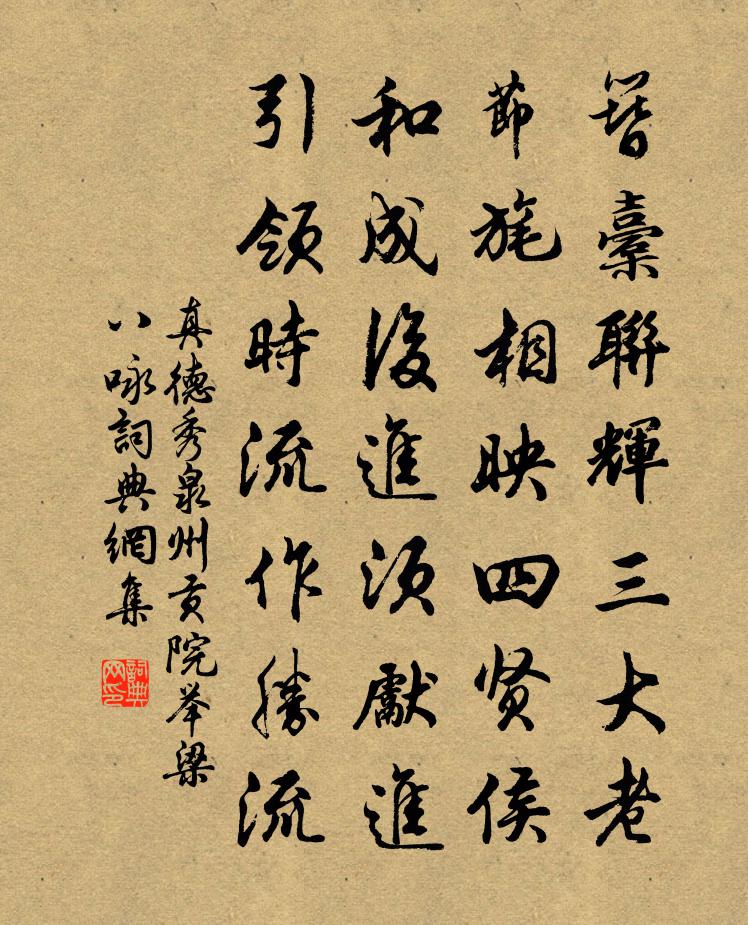 簪橐聯輝三大老
節旄相映四贤侯
和成後進須獻進
引領時流作勝流
真德秀泉州贡院举梁
八咏詞典網集
詞典网印